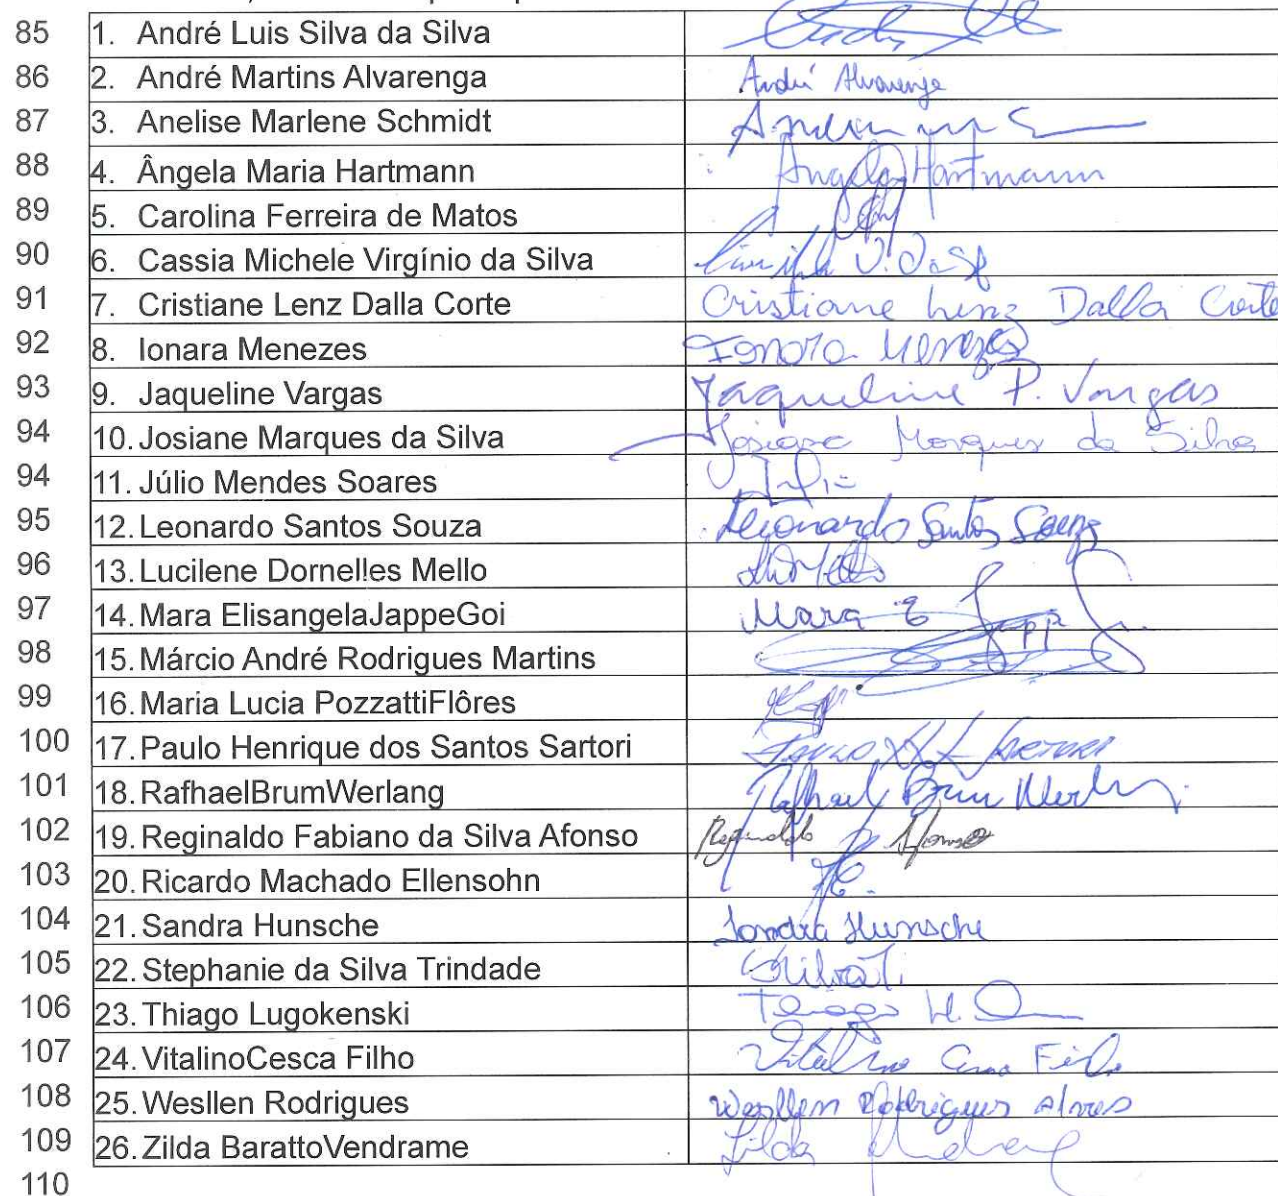 85 1. André Luis Silva da Silva
86 2. André Martins Alvarenga André Alvarenga
87 3. Anelise Marlene Schmidt
88 4. Ângela Maria Hartmann Angela Hartmann
89 5. Carolina Ferreira de Matos
90 6. Cassia Michele Virgínio da Silva
91 7. Cristiane Lenz Dalla Corte Cristiane Lenz Dalla Corte
92 8. Ionara Menezes Ionara Menezes
93 9. Jaqueline Vargas Jaqueline P. Vargas
94 10. Josiane Marques da Silva Josiane Marques da Silva
94 11. Júlio Mendes Soares Júlio
95 12. Leonardo Santos Souza Leonardo Santos Souza
96 13. Lucilene Dornelles Mello
97 14. Mara ElisangelaJappeGoi Mara E Jappe
98 15. Márcio André Rodrigues Martins
99 16. Maria Lucia PozzattiFlôres
100 17. Paulo Henrique dos Santos Sartori
101 18. RafhaelBrumWerlang Rafhael Brum Werlang
102 19. Reginaldo Fabiano da Silva Afonso Reginaldo Afonso
103 20. Ricardo Machado Ellensohn
104 21. Sandra Hunsche Sandra Hunsche
105 22. Stephanie da Silva Trindade
106 23. Thiago Lugokenski Thiago
107 24. VitalinoCesca Filho Vitalino Cesca Filho
108 25. Wesllen Rodrigues Wesllen Rodrigues Alves
109 26. Zilda BarattoVendrame Zilda
110